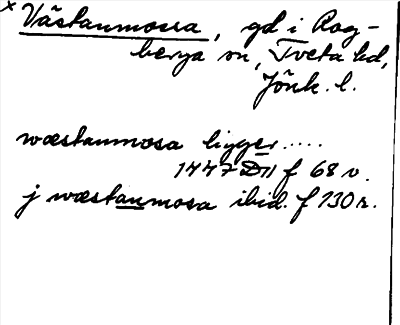 x Västanmossa, gd i Rog-
berga sn, Tveta hd,
Jönk. l.
wæstanmosa ligger.....
1447 DII f 68 v.
j wæstanmosa ibid. f 130 r.